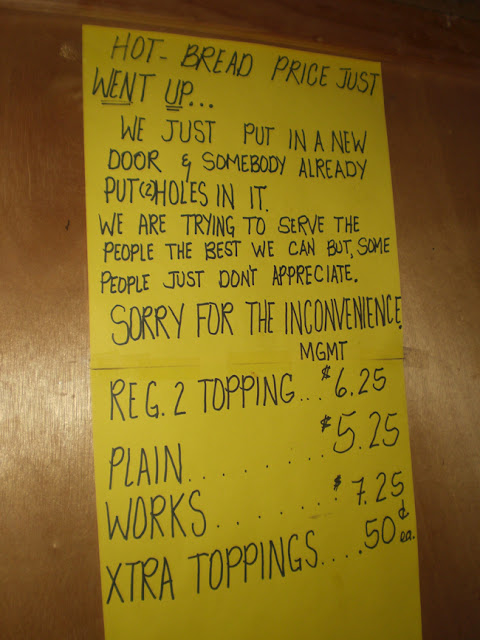 HOT-BREAD PRICE JUST
WENT UP...
WE JUST PUT IN A NEW
DOOR & SOMEBODY ALREADY
PUT (2) HOLES IN IT.
WE ARE TRYING TO SERVE THE
PEOPLE THE BEST WE CAN BUT, SOME
PEOPLE JUST DON'T APPRECIATE.
SORRY FOR THE INCONVENIENCE.
MGMT
REG. 2 TOPPING...$6.25
PLAIN........$5.25
WORKS.......$7.25
XTRA TOPPINGS....50¢ ea.